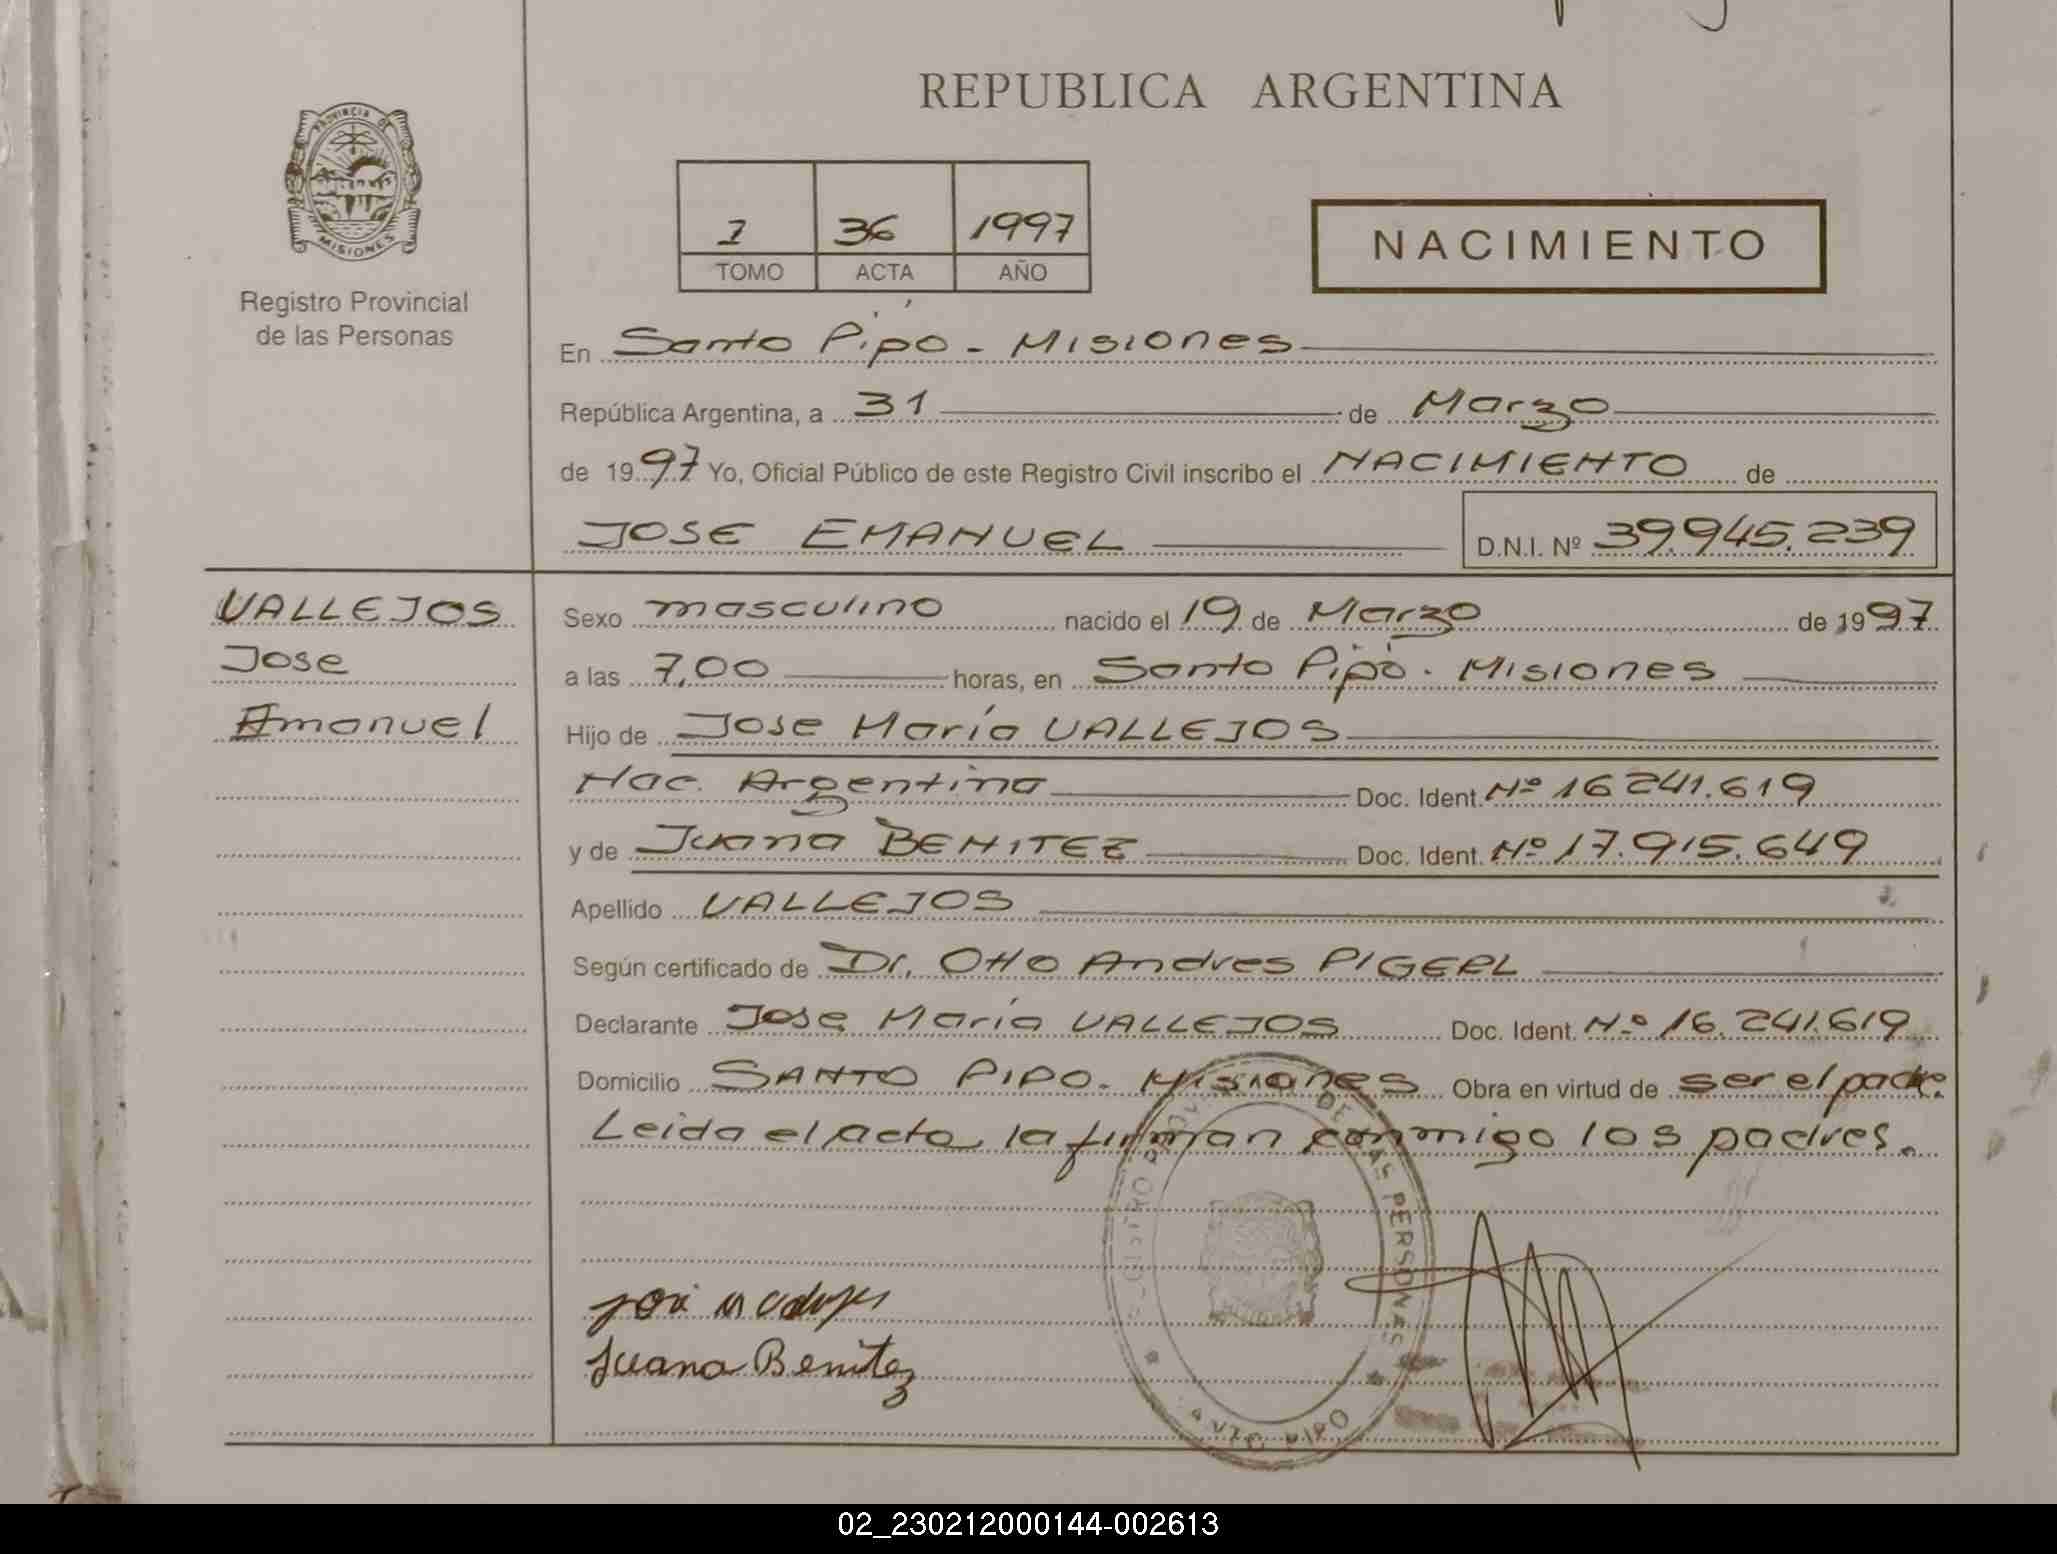 REPUBLICA ARGENTINA
PROVINCIA DE
MISIONES
Registro Provincial
de las Personas
1 36 1997
TOMO ACTA AÑO
NACIMIENTO
En Santo Pipó - Misiones
República Argentina, a 31 de Marzo
de 1997 Yo, Oficial Público de este Registro Civil inscribo el NACIMIENTO de
JOSE EMANUEL D.N.I. Nº 39.945.239
VALLEJOS
Jose
Emanuel
Sexo masculino nacido el 19 de Marzo de 1997
a las 7,00 horas, en Santo Pipó - Misiones
Hijo de Jose María VALLEJOS
Nac. Argentina Doc. Ident. Nº 16 241.619
y de Juana BENITEZ Doc. Ident. Nº 17.915.649
Apellido VALLEJOS
Según certificado de Dr. Otto Andres PIGERL
Declarante Jose María VALLEJOS Doc. Ident. Nº 16.241.619
Domicilio SANTO PIPO - Misiones Obra en virtud de ser el padre.
Leida el acta, la firman conmigo los padres.
REGISTRO PROV. DE LAS PERSONAS
Juana Benitez
SANTO PIPO
02_230212000144-002613